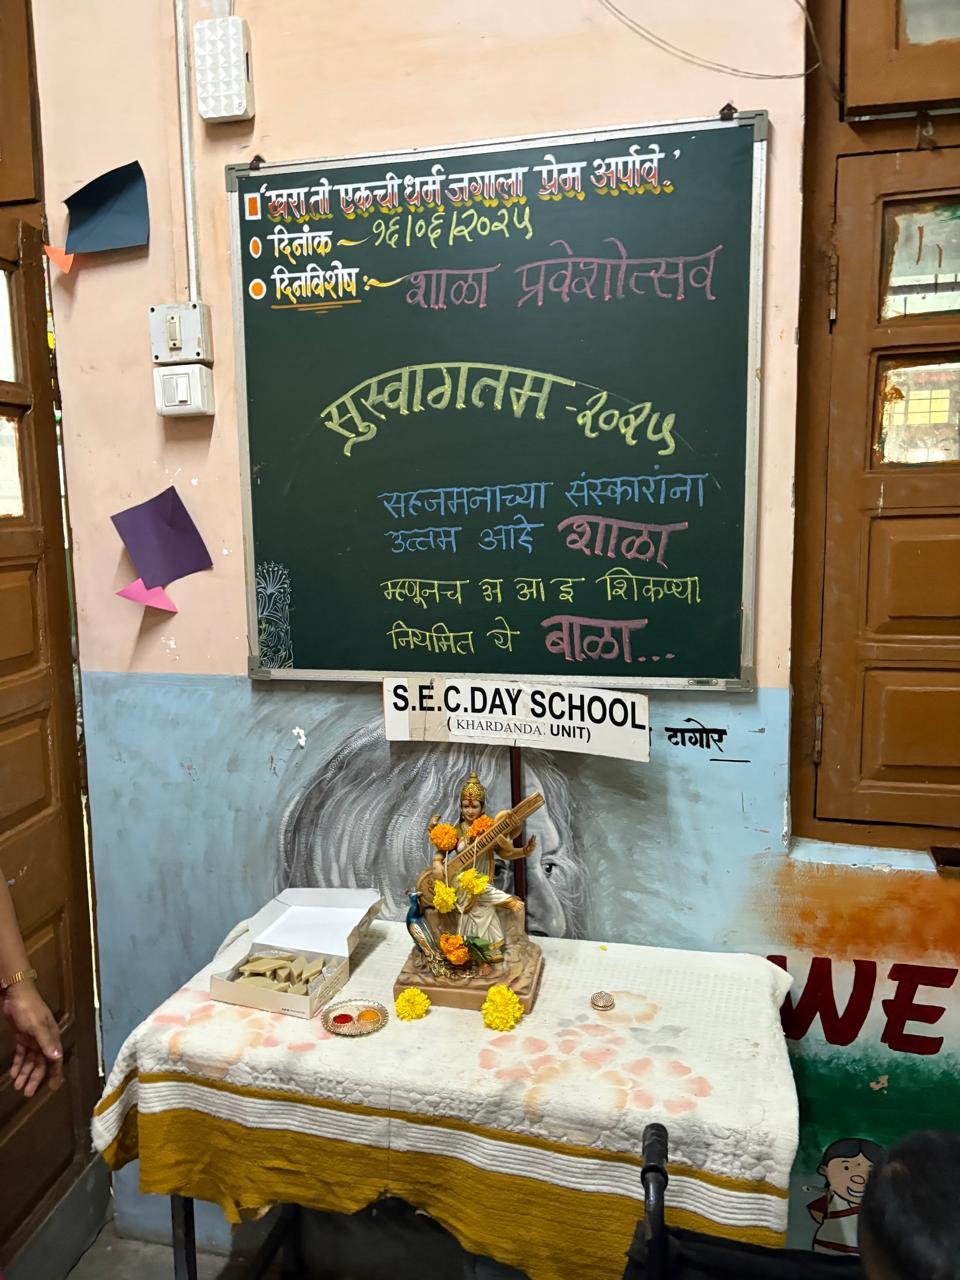 'खरा तो एकची धर्म जगाला प्रेम अर्पावे.'
दिनांक ~ १६/०६/२०२५
दिनविशेष :~ शाळा प्रवेशोत्सव
सुस्वागतम - २०२५
सहजमनाच्या संस्कारांना
उत्तम आहे शाळा
म्हणूनच अ आ इ शिकण्या
नियमित ये बाळा...
S.E.C.DAY SCHOOL
( KHARDANDA. UNIT)
टागोर
WE